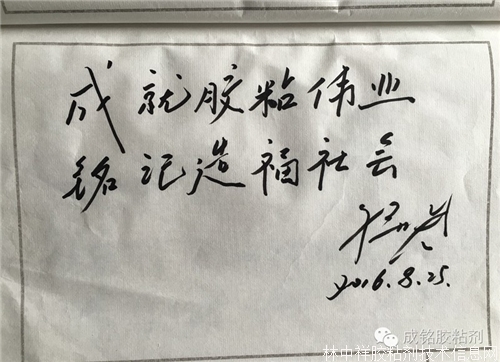 成就胶粘伟业
铭记造福社会
2016.8.25.
成铭胶粘剂
林中祥胶粘剂技术信息网